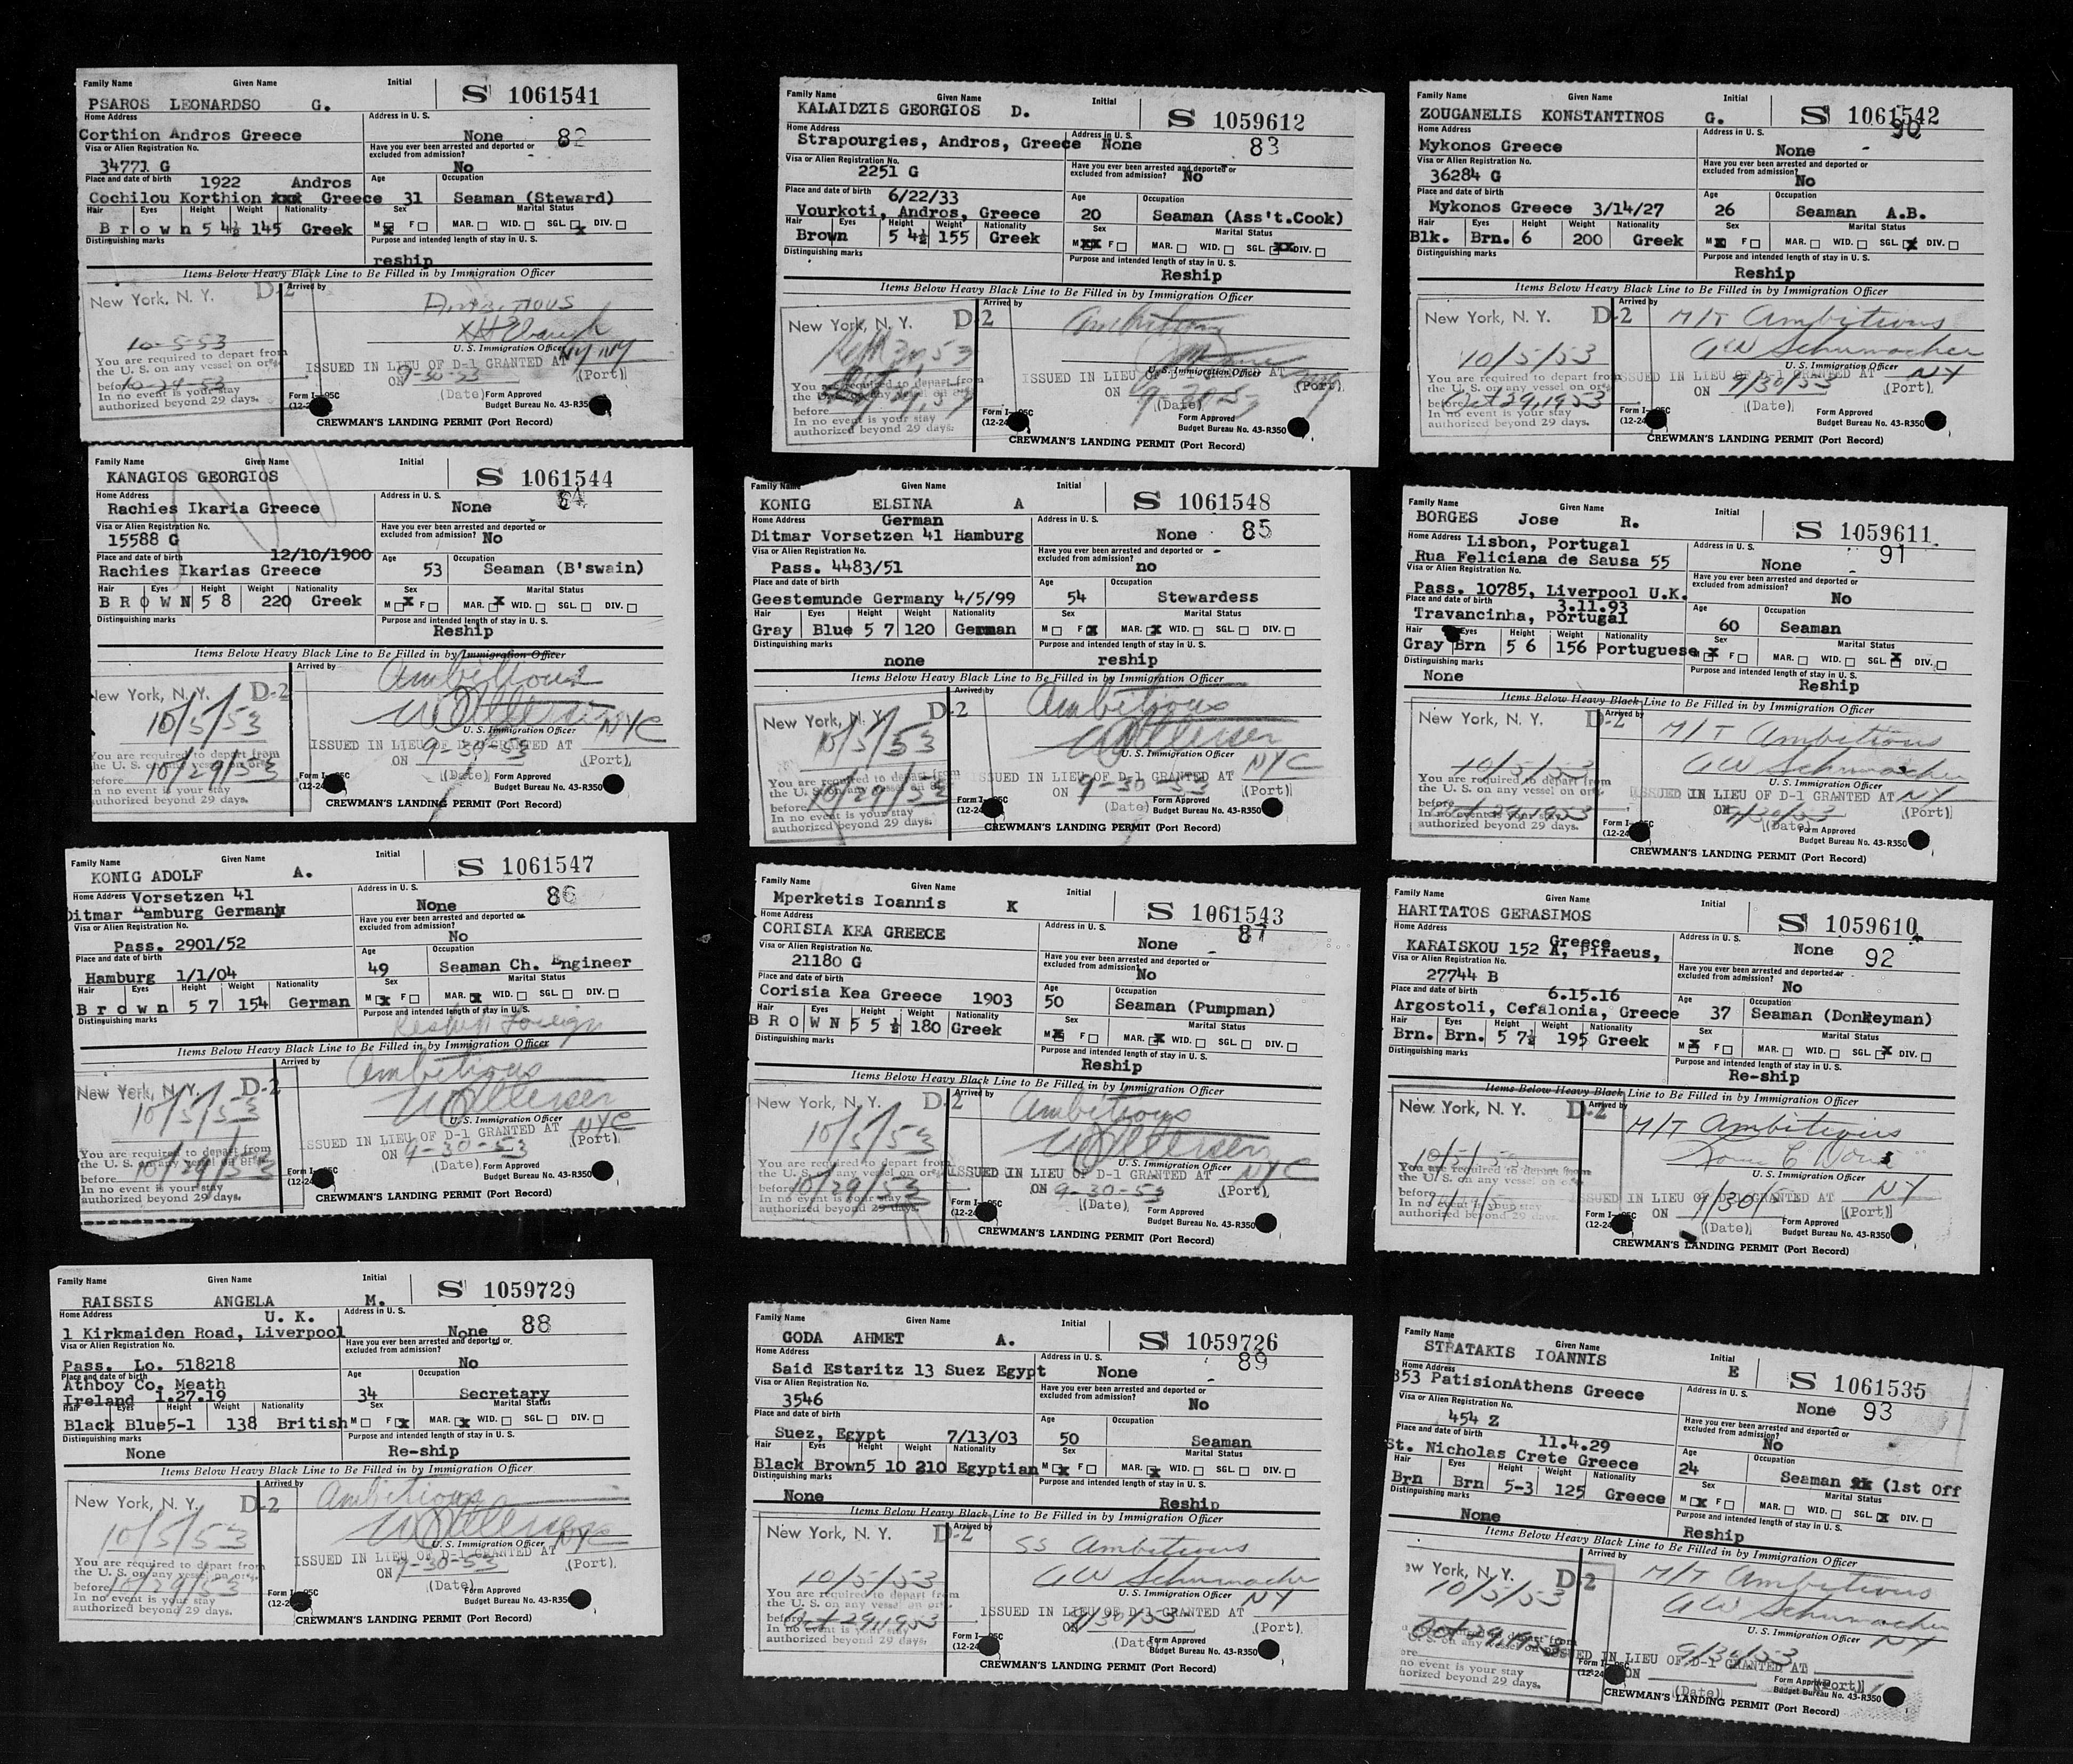 Family Name Given Name Initial
S 1061541
PSAROS LEONARDSO G.
Home Address Address in U. S.
Corthion Andros Greece None 82
Visa or Alien Registration No. Have you ever been arrested and deported or excluded from admission?
34771 G No
Place and date of birth Age Occupation
1922 Andros
Cochilou Korthion Greece 31 Seaman (Steward)
Hair Eyes Height Weight Nationality Sex Marital Status
Brown 5 4½ 145 Greek M F MAR. WID. SGL. x DIV.
Distinguishing marks Purpose and intended length of stay in U. S.
reship
Items Below Heavy Black Line to Be Filled in by Immigration Officer
New York, N. Y. D-2 Arrived by
Ambitious
10-5-53
U. S. Immigration Officer
You are required to depart from
the U. S. on any vessel on or
before 10-29-53
In no event is your stay
authorized beyond 29 days.
ISSUED IN LIEU OF D-1 GRANTED AT NY NY
ON 9-30-53 (Date) (Port)
Form Approved
Budget Bureau No. 43-R350
CREWMAN'S LANDING PERMIT (Port Record)
Family Name Given Name Initial
S 1059612
KALAIDZIS GEORGIOS D.
Home Address Address in U. S.
Strapourgies, Andros, Greece None 83
Visa or Alien Registration No. Have you ever been arrested and deported or excluded from admission?
2251 G No
Place and date of birth Age Occupation
6/22/33
Vourkoti, Andros, Greece 20 Seaman (Ass't.Cook)
Hair Eyes Height Weight Nationality Sex Marital Status
Brown 5 4½ 155 Greek M xx F MAR. WID. SGL. xx DIV.
Distinguishing marks Purpose and intended length of stay in U. S.
Reship
Items Below Heavy Black Line to Be Filled in by Immigration Officer
New York, N. Y. D-2 Arrived by
Ambitious
U. S. Immigration Officer
You are required to depart from
the U. S. on any vessel on or
before
In no event is your stay
authorized beyond 29 days.
ISSUED IN LIEU OF D-1 GRANTED AT
ON (Date) (Port)
Form Approved
Budget Bureau No. 43-R350
CREWMAN'S LANDING PERMIT (Port Record)
Family Name Given Name Initial
S 1061542
ZOUGANELIS KONSTANTINOS G.
90
Home Address Address in U. S.
Mykonos Greece None
Visa or Alien Registration No. Have you ever been arrested and deported or excluded from admission?
36284 G No
Place and date of birth Age Occupation
Mykonos Greece 3/14/27 26 Seaman A.B.
Hair Eyes Height Weight Nationality Sex Marital Status
Blk. Brn. 6 200 Greek M x F MAR. WID. SGL. x DIV.
Distinguishing marks Purpose and intended length of stay in U. S.
Reship
Items Below Heavy Black Line to Be Filled in by Immigration Officer
New York, N. Y. D-2 Arrived by
M/T Ambitious
GW Schumacher
10/5/53
U. S. Immigration Officer
You are required to depart from
the U. S. on any vessel on or
before Oct 29, 1953
In no event is your stay
authorized beyond 29 days.
ISSUED IN LIEU OF D-1 GRANTED AT NY
ON 9/30/53 (Date) (Port)
Form Approved
Budget Bureau No. 43-R350
CREWMAN'S LANDING PERMIT (Port Record)
Family Name Given Name Initial
S 1061544
KANAGIOS GEORGIOS
Home Address Address in U. S.
Rachies Ikaria Greece None 84
Visa or Alien Registration No. Have you ever been arrested and deported or excluded from admission?
15588 G No
Place and date of birth Age Occupation
12/10/1900
Rachies Ikarias Greece 53 Seaman (B'swain)
Hair Eyes Height Weight Nationality Sex Marital Status
BROWN 5 8 220 Greek M x F MAR. x WID. SGL. DIV.
Distinguishing marks Purpose and intended length of stay in U. S.
Reship
Items Below Heavy Black Line to Be Filled in by Immigration Officer
New York, N. Y. D-2 Arrived by
Ambitious
10/5/53
U. S. Immigration Officer
You are required to depart from
the U. S. on any vessel on or
before 10/29/53
In no event is your stay
authorized beyond 29 days.
ISSUED IN LIEU OF D-1 GRANTED AT NYC
ON 9-30-53 (Date) (Port)
Form Approved
Budget Bureau No. 43-R350
CREWMAN'S LANDING PERMIT (Port Record)
Family Name Given Name Initial
S 1061548
KONIG ELSINA A
Home Address Address in U. S.
German
Ditmar Vorsetzen 41 Hamburg None 85
Visa or Alien Registration No. Have you ever been arrested and deported or excluded from admission?
Pass. 4483/51 no
Place and date of birth Age Occupation
Geestemunde Germany 4/5/99 54 Stewardess
Hair Eyes Height Weight Nationality Sex Marital Status
Gray Blue 5 7 120 German M F x MAR. x WID. SGL. DIV.
Distinguishing marks Purpose and intended length of stay in U. S.
none reship
Items Below Heavy Black Line to Be Filled in by Immigration Officer
New York, N. Y. D-2 Arrived by
Ambitious
10/5/53
U. S. Immigration Officer
You are required to depart from
the U. S. on any vessel on or
before 10/29/53
In no event is your stay
authorized beyond 29 days.
ISSUED IN LIEU OF D-1 GRANTED AT NYC
ON 9-30-53 (Date) (Port)
Form Approved
Budget Bureau No. 43-R350
CREWMAN'S LANDING PERMIT (Port Record)
Family Name Given Name Initial
S 1059611
BORGES Jose R.
91
Home Address Address in U. S.
Lisbon, Portugal
Rua Feliciana de Sausa 55 None
Visa or Alien Registration No. Have you ever been arrested and deported or excluded from admission?
Pass. 10785, Liverpool U.K. No
Place and date of birth Age Occupation
3.11.93
Travancinha, Portugal 60 Seaman
Hair Eyes Height Weight Nationality Sex Marital Status
Gray Brn 5 6 156 Portuguese M x F MAR. WID. SGL. x DIV.
Distinguishing marks Purpose and intended length of stay in U. S.
None Reship
Items Below Heavy Black Line to Be Filled in by Immigration Officer
New York, N. Y. D-2 Arrived by
M/T Ambitious
GW Schumacher
10/5/53
U. S. Immigration Officer
You are required to depart from
the U. S. on any vessel on or
before Oct 29, 1953
In no event is your stay
authorized beyond 29 days.
ISSUED IN LIEU OF D-1 GRANTED AT NY
ON 9/30/53 (Date) (Port)
Form Approved
Budget Bureau No. 43-R350
CREWMAN'S LANDING PERMIT (Port Record)
Family Name Given Name Initial
S 1061547
KONIG ADOLF A.
Home Address Address in U. S.
Vorsetzen 41
Ditmar Hamburg Germany None 86
Visa or Alien Registration No. Have you ever been arrested and deported or excluded from admission?
Pass. 2901/52 No
Place and date of birth Age Occupation
Hamburg 1/1/04 49 Seaman Ch. Engineer
Hair Eyes Height Weight Nationality Sex Marital Status
Brown 5 7 154 German M x F MAR. x WID. SGL. DIV.
Distinguishing marks Purpose and intended length of stay in U. S.
Reship Foreign
Items Below Heavy Black Line to Be Filled in by Immigration Officer
New York, N. Y. D-2 Arrived by
Ambitious
10/5/53
U. S. Immigration Officer
You are required to depart from
the U. S. on any vessel on or
before 10/29/53
In no event is your stay
authorized beyond 29 days.
ISSUED IN LIEU OF D-1 GRANTED AT NYC
ON 9-30-53 (Date) (Port)
Form Approved
Budget Bureau No. 43-R350
CREWMAN'S LANDING PERMIT (Port Record)
Family Name Given Name Initial
S 1061543
Mperketis Ioannis K
87
Home Address Address in U. S.
CORISIA KEA GREECE None
Visa or Alien Registration No. Have you ever been arrested and deported or excluded from admission?
21180 G No
Place and date of birth Age Occupation
Corisia Kea Greece 1903 50 Seaman (Pumpman)
Hair Eyes Height Weight Nationality Sex Marital Status
BROWN 5 5½ 180 Greek M x F MAR. x WID. SGL. DIV.
Distinguishing marks Purpose and intended length of stay in U. S.
Reship
Items Below Heavy Black Line to Be Filled in by Immigration Officer
New York, N. Y. D-2 Arrived by
Ambitious
10/5/53
U. S. Immigration Officer
You are required to depart from
the U. S. on any vessel on or
before 10/29/53
In no event is your stay
authorized beyond 29 days.
ISSUED IN LIEU OF D-1 GRANTED AT NYC
ON 9-30-53 (Date) (Port)
Form Approved
Budget Bureau No. 43-R350
CREWMAN'S LANDING PERMIT (Port Record)
Family Name Given Name Initial
S 1059610
HARITATOS GERASIMOS
Home Address Address in U. S.
Greece
KARAISKOU 152 A, Piraeus, None 92
Visa or Alien Registration No. Have you ever been arrested and deported or excluded from admission?
27744 B No
Place and date of birth Age Occupation
6.15.16
Argostoli, Cefalonia, Greece 37 Seaman (Donkeyman)
Hair Eyes Height Weight Nationality Sex Marital Status
Brn. Brn. 5 7½ 195 Greek M x F MAR. WID. SGL. x DIV.
Distinguishing marks Purpose and intended length of stay in U. S.
Re-ship
Items Below Heavy Black Line to Be Filled in by Immigration Officer
New York, N. Y. D-2 Arrived by
M/T Ambitious
10/5/
U. S. Immigration Officer
You are required to depart from
the U. S. on any vessel on or
before
In no event is your stay
authorized beyond 29 days.
ISSUED IN LIEU OF D-1 GRANTED AT NY
ON 9/30/ (Date) (Port)
Form Approved
Budget Bureau No. 43-R350
CREWMAN'S LANDING PERMIT (Port Record)
Family Name Given Name Initial
S 1059729
RAISSIS ANGELA M.
Home Address Address in U. S.
U. K.
1 Kirkmaiden Road, Liverpool None 88
Visa or Alien Registration No. Have you ever been arrested and deported or excluded from admission?
Pass. Lo. 518218 No
Place and date of birth Age Occupation
Athboy Co. Meath
Ireland 1.27.19 34 Secretary
Hair Eyes Height Weight Nationality Sex Marital Status
Black Blue 5-1 138 British M F x MAR. x WID. SGL. DIV.
Distinguishing marks Purpose and intended length of stay in U. S.
None Re-ship
Items Below Heavy Black Line to Be Filled in by Immigration Officer
New York, N. Y. D-2 Arrived by
Ambitious
10/5/53
U. S. Immigration Officer
You are required to depart from
the U. S. on any vessel on or
before 10/29/53
In no event is your stay
authorized beyond 29 days.
ISSUED IN LIEU OF D-1 GRANTED AT NYC
ON 9-30-53 (Date) (Port)
Form Approved
Budget Bureau No. 43-R350
CREWMAN'S LANDING PERMIT (Port Record)
Family Name Given Name Initial
S 1059726
GODA AHMET A.
89
Home Address Address in U. S.
Said Estaritz 13 Suez Egypt None
Visa or Alien Registration No. Have you ever been arrested and deported or excluded from admission?
3546 No
Place and date of birth Age Occupation
Suez, Egypt 7/13/03 50 Seaman
Hair Eyes Height Weight Nationality Sex Marital Status
Black Brown 5 10 210 Egyptian M x F MAR. x WID. SGL. DIV.
Distinguishing marks Purpose and intended length of stay in U. S.
None Reship
Items Below Heavy Black Line to Be Filled in by Immigration Officer
New York, N. Y. D-2 Arrived by
SS Ambitious
GW Schumacher
10/5/53
U. S. Immigration Officer
You are required to depart from
the U. S. on any vessel on or
before Oct 29, 1953
In no event is your stay
authorized beyond 29 days.
ISSUED IN LIEU OF D-1 GRANTED AT NY
ON 9/30/53 (Date) (Port)
Form Approved
Budget Bureau No. 43-R350
CREWMAN'S LANDING PERMIT (Port Record)
Family Name Given Name Initial
S 1061535
STRATAKIS IOANNIS E
Home Address Address in U. S.
353 PatisionAthens Greece None 93
Visa or Alien Registration No. Have you ever been arrested and deported or excluded from admission?
454 Z No
Place and date of birth Age Occupation
11.4.29
St. Nicholas Crete Greece 24 Seaman (1st Off
Hair Eyes Height Weight Nationality Sex Marital Status
Brn Brn 5-3 125 Greece M x F MAR. WID. SGL. x DIV.
Distinguishing marks Purpose and intended length of stay in U. S.
None Reship
Items Below Heavy Black Line to Be Filled in by Immigration Officer
ew York, N. Y. D-2 Arrived by
M/T Ambitious
GW Schumacher
10/5/53
U. S. Immigration Officer
Oct 29, 1953
U. S. on any vessel on
ore
no event is your stay
horized beyond 29 days.
ISSUED IN LIEU OF D-1 GRANTED AT NY
ON 9/30/53 (Date) (Port)
Form Approved
Budget Bureau No. 43-R350
CREWMAN'S LANDING PERMIT (Port Record)